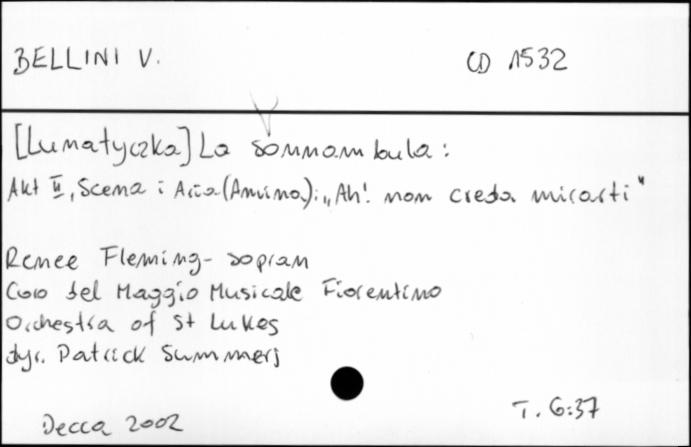 BELLINI V. CD 1532
[Lunatyczka] La sonnambula:
Akt II, Scena i Aria (Amina): „Ah! non creda mirarti"
Renee Fleming - sopran
Coro del Maggio Musicale Fiorentino
Orchestra of St Lukes
dyr. Patrick Summers
Decca 2002 T. 6:37